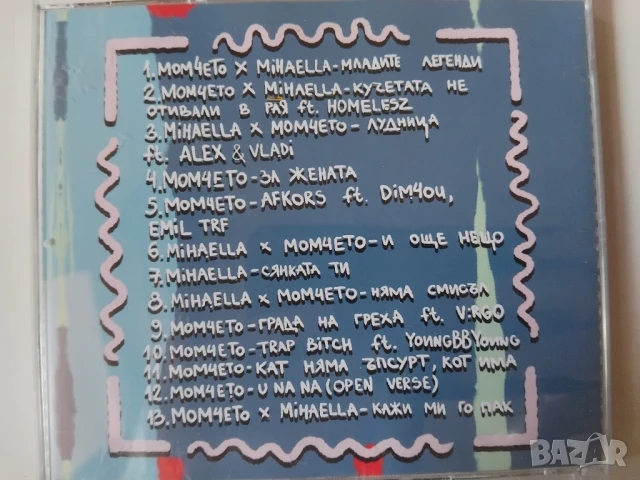 1. МОМ4ЕТО X MiHAELLA-МЛАДИТЕ ЛЕГЕНДИ
2. МОМЧЕТО X MiHAELLA-КУЧЕТАТА НЕ
ОТИВАЛИ В РАЯ ft. HOMELESZ
3. MiHAELLA X МОМЧЕТО- ЛУДНИЦА
ft. ALEX & VLADi
4. МОМ4ЕТО-ЗА ЖЕНАТА
5. МОМ4ЕТО-AFKORS ft. DiM4OU,
EMiL TRF
6. MiHAELLA X МОМ4ЕТО-И ОЩЕ НЕЩО
7. MiHAELLA-СЯНКАТА ТИ
8. MiHAELLA X МОМ4ЕТО-НЯМА СМИСЪЛ
9. МОМ4ЕТО-ГРАДА НА ГРЕХА ft. V:RGO
10. МОМ4ЕТО-TRAP BiTCH ft. YOUNGBBYOUNG
11. МОМ4ЕТО-КАТ НЯМА ЪПСУРТ, КОТ ИМА
12. МОМ4ЕТО-U NA NA (OPEN VERSE)
13. МОМ4ЕТО X MiHAELLA-КАЖИ МИ ГО ПАК
BAZAR
bazar.bg